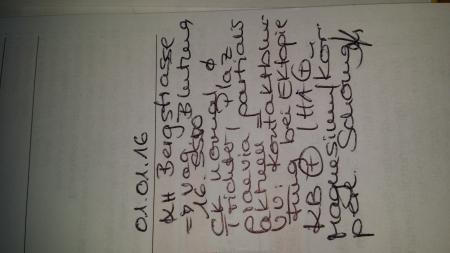 01.01.16
KH Bergstrasse
=> vag Blutung
16. SSW
CK normal ∅
Trichter, Plaz
praevia partialis
aktuell =
V.U: Kontaktblu-
tung bei Ektopie
KB ⊕ HA ⊕
Magnesium, kör-
perl. Schonung